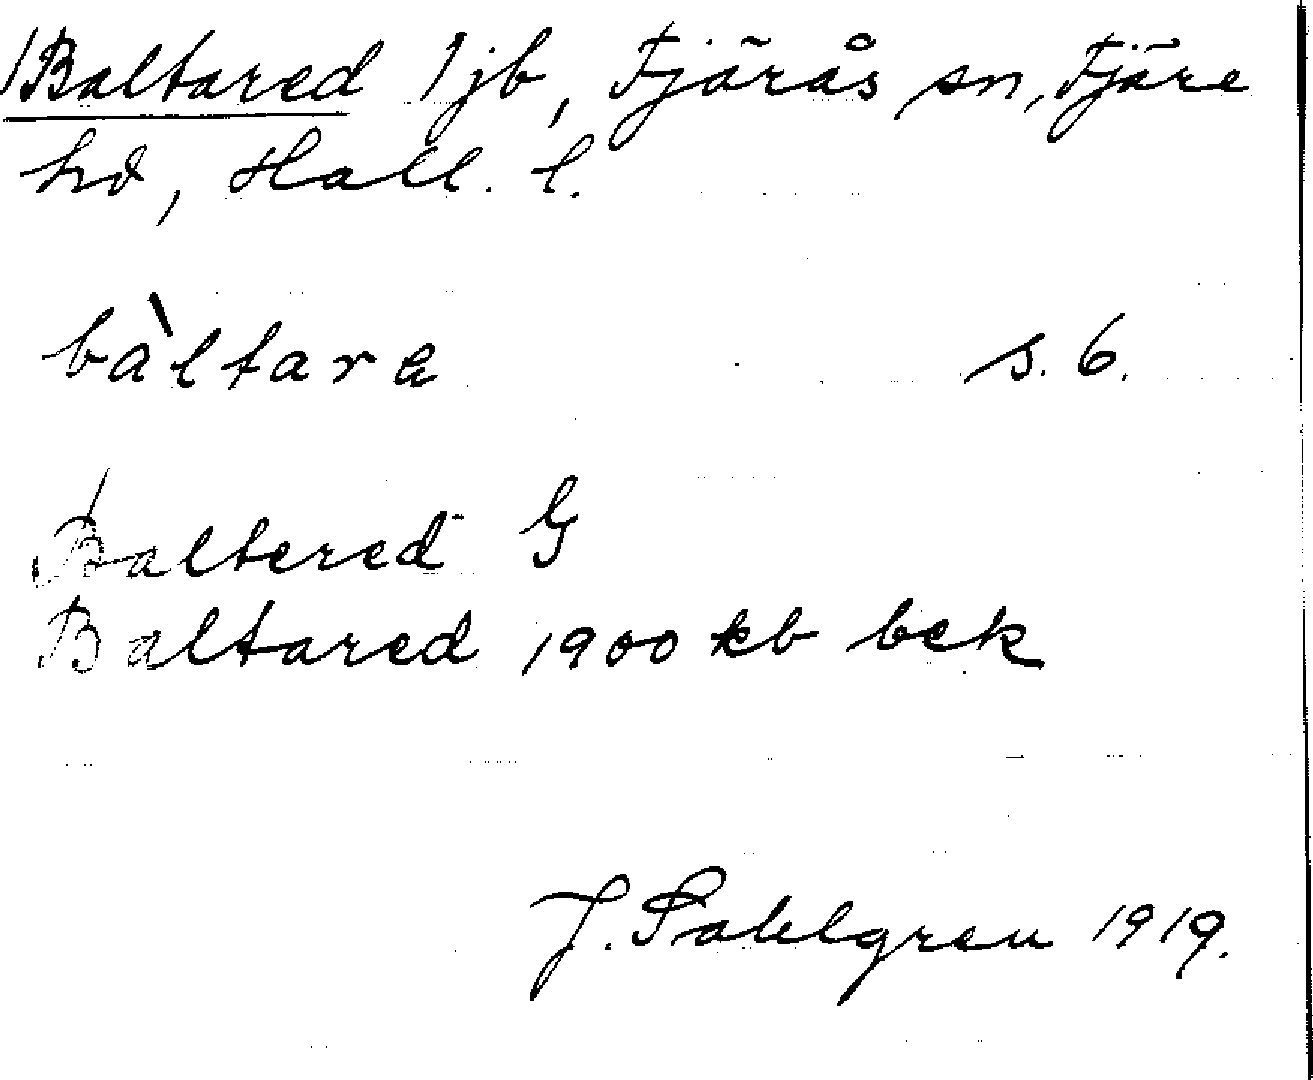 Baltared 1 jb, Fjärås sn, Fjäre
hd, Hall. l.
bàltarɐ s. 6.
Baltered G
Baltared 1900 kb bek
J. Sahlgren 1919.